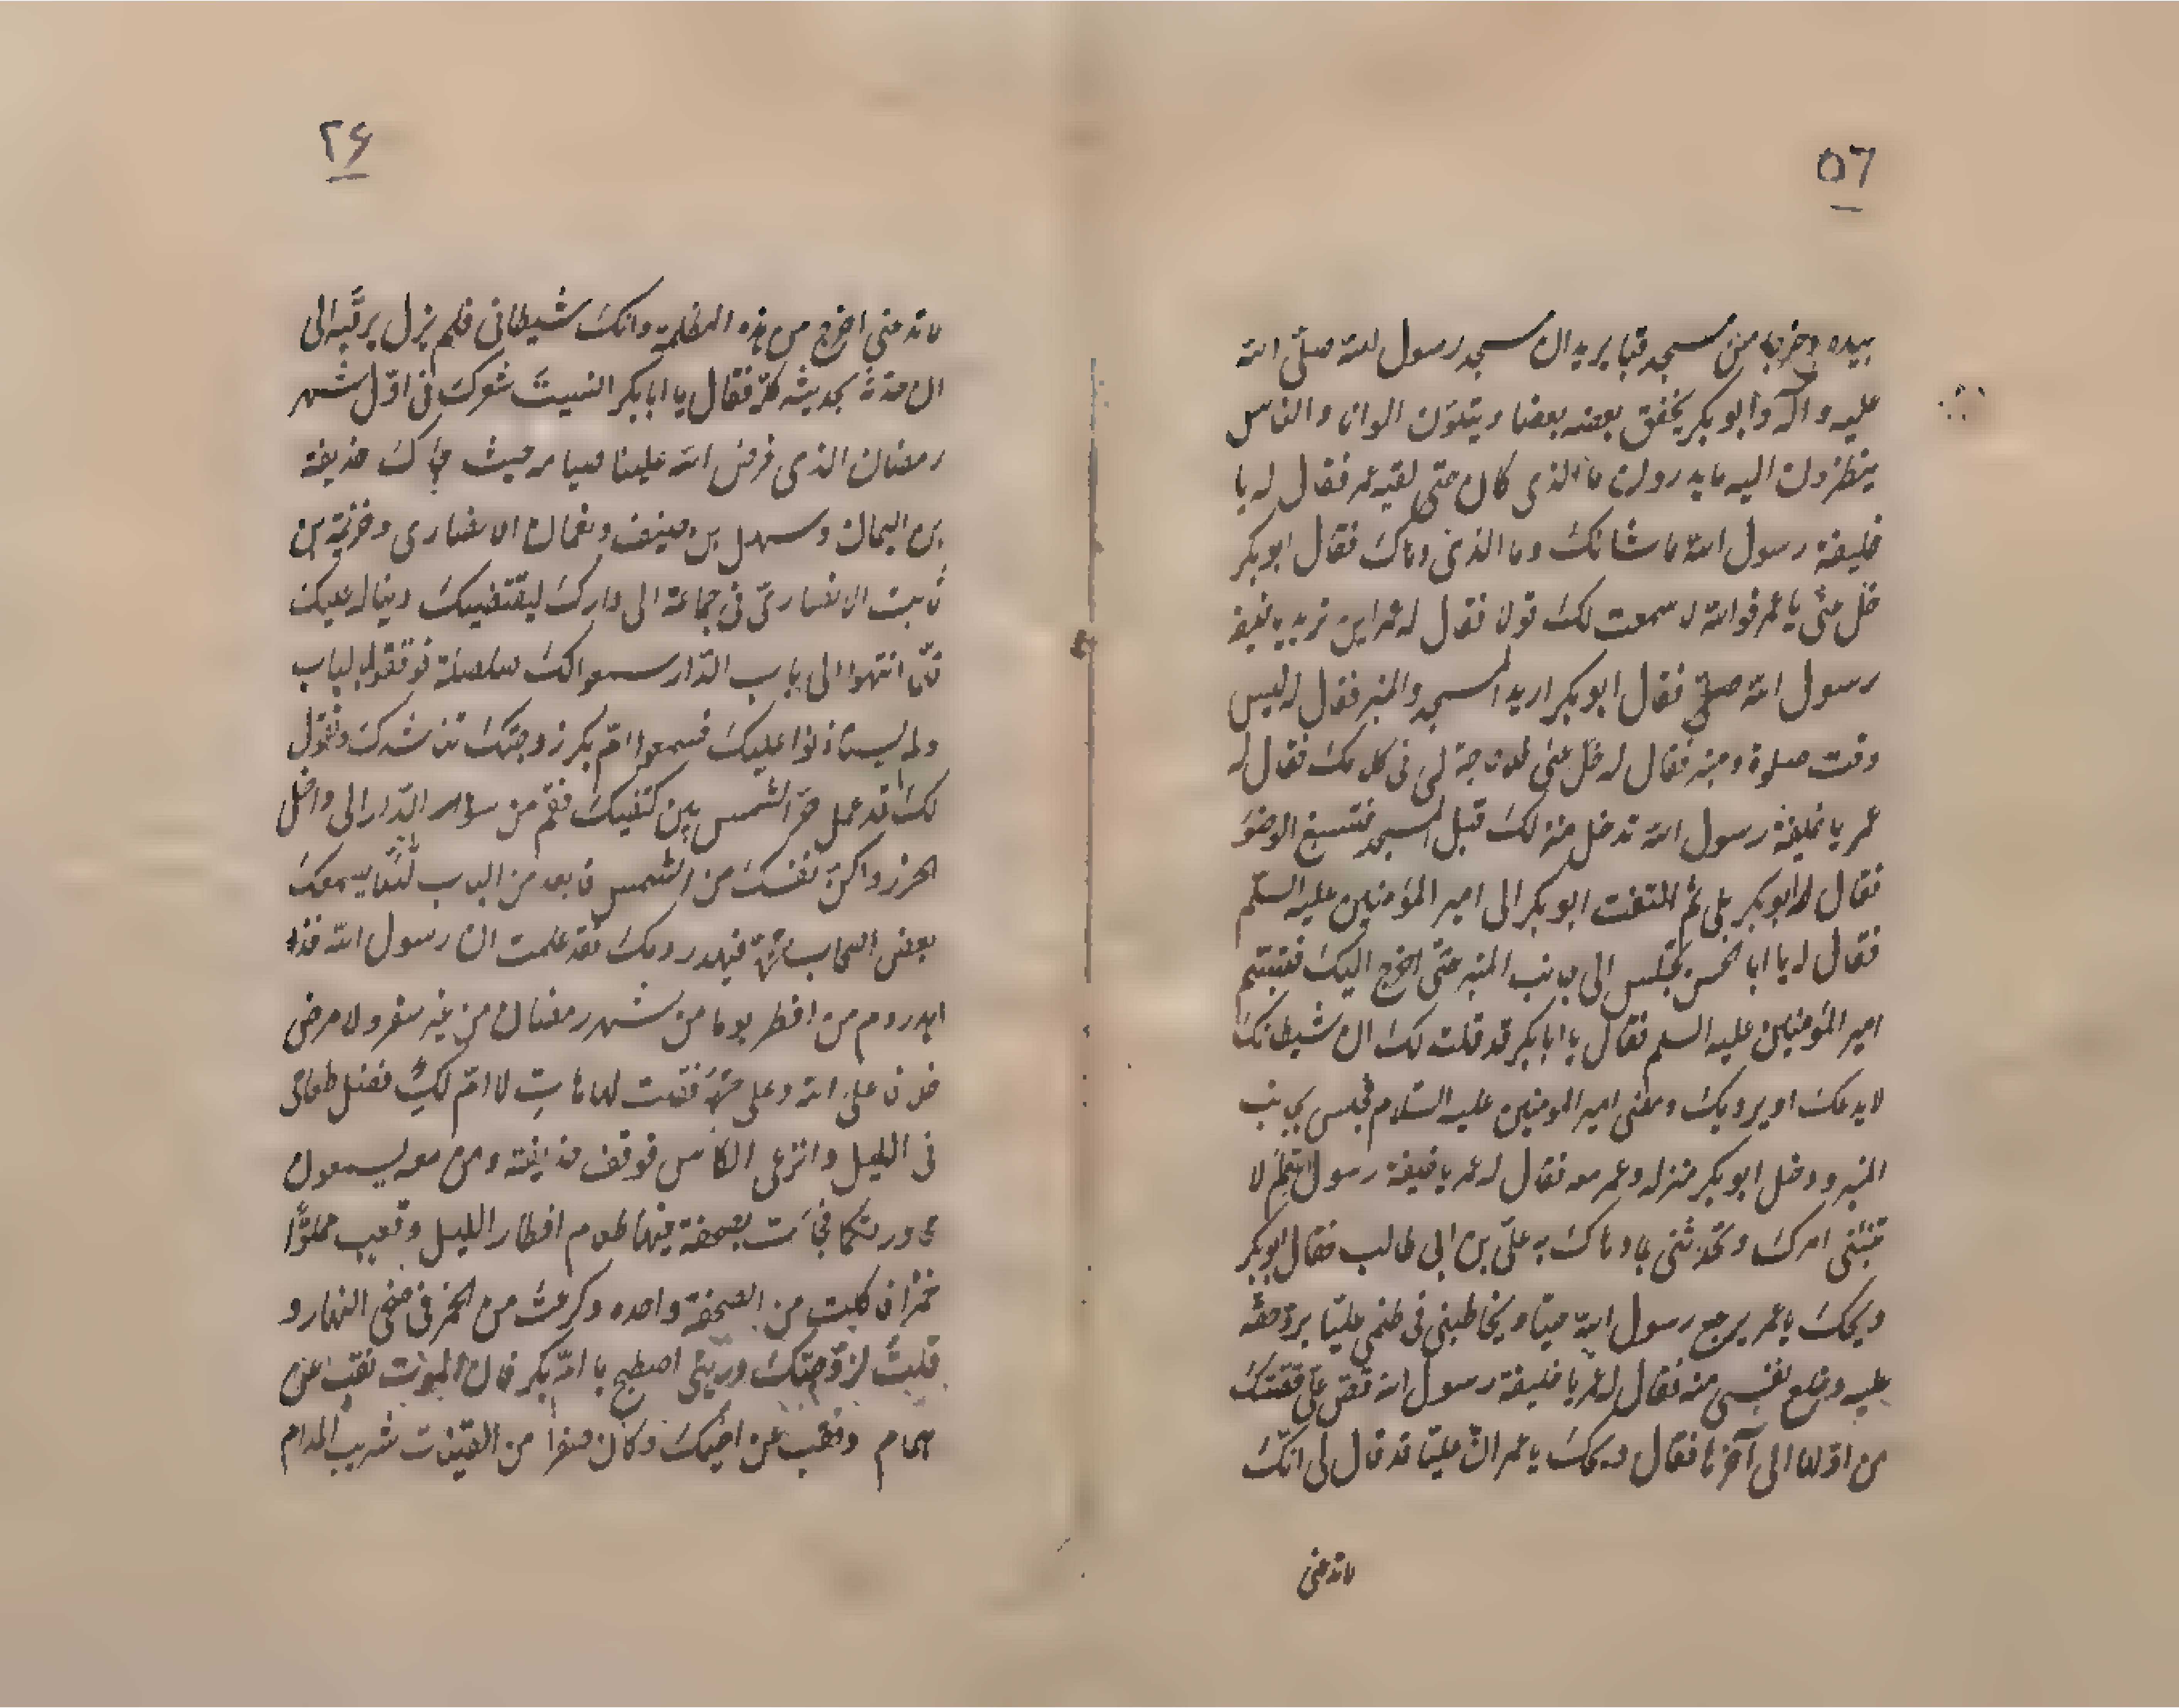 ٥٦
بيده وخرجا من مسجد قبا يريدان مسجد رسول الله صلّى الله
عليه وآله وابو بكر يخفق بعضه بعضا ويتلوّن الوانا والناس
ينظرون اليه ما يدرون ما الذى كان حتى لقيه عمر فقال له يا
خليفة رسول الله ما شانك وما الذى دهاك فقال ابو بكر
خلّ عنّى يا عمر فوالله لا سمعت لك قولا فقال له عمر اين تريد يا خليفة
رسول الله صلع فقال ابو بكر اريد المسجد والمنبر فقال له ليس
وقت صلوة ومنبر فقال له خلّ عنى فلا حاجة لى فى كلامك فقال له
عمر يا خليفة رسول الله تدخل منزلك قبل المسجد فتسبغ الوضوء
فقال له ابو بكر بلى ثم التفت ابو بكر الى امير المؤمنين عليه السلم
فقال له يا ابا الحسن تجلس الى جانب المنبر حتّى اخرج اليك فتبسّم
امير المؤمنين عليه السلم فقال يا ابا بكر قد قلت لك ان شيطانك
لا يدعك او يرديك ومضى امير المؤمنين عليه السّلام فجلس بجانب
المنبر ودخل ابو بكر منزله وعمر معه فقال له عمر يا خليفة رسول الله لم لا
تنبئنى امرك وتحدثنى بما دهاك به علىّ بن ابى طالب فقال ابو بكر
ويحك يا عمر يرجع رسول الله حيّا ويخاطبنى فى ظلمى عليّا بردّ حقّه
عليه وخلع نفسى منه فقال له عمر يا خليفة رسول الله قصّ علىّ قصّتك
من اوّلها الى آخرها فقال ويحك يا عمر انّ عليّا قد قال لى انّك
لا تدعنى
٢۶
لا تدعنى اخرج من هذه المظلمة وانك شيطانى فلم يزل يرقبه الى
ان حدثه بحديثه كلّه فقال يا ابا بكر انسيت شعرك فى اوّل شهر
رمضان الذى فرض الله علينا صيامه حيث جاءك حذيفة
بن اليمان وسهل بن حنيف ونعمان الانصارى وخزيمة بن
ثابت الانصارىّ فى جماعة الى دارك ليقتضيك دينا له عليك
فلمّا انتهوا الى باب الدّار سمعوا لك صلصلة فوقفوا بالباب
ولم يستاذنوا عليك فسمعوا امّ بكر زوجتك تناشدك وتقول
لك قد عمل حرّ الشمس بين كتفيك فقم من الدّار الى داخل
نفسك من الشمس وابعد من الباب لئلّا يسمعك
بعض اصحاب محمّد فيهدر دمك فقد علمت ان رسول الله قد
اهدر دم من افطر يوما من شهر رمضان من غير سفر ولا مرض
خلافا على الله وعلى محمّد فقلت لها هاتِ لا امّ لكِ فضل طعامى
فى الليل واترعى الكاس فوقف حذيفة ومن معه يسمعون
محاورتكما فجاءت بصحفة فيها طعام افطار الليل وقعب مملوّا
خمرا فاكلت من الصحفة واحده وكرعت من الخمر فى ضحى النهار و
قلت لزوجتك ذرينى اصطبح يا امّ بكر فان الموت نقب عن
هشام ونقب عن اخيك وكان من الفتيان شريب المدام